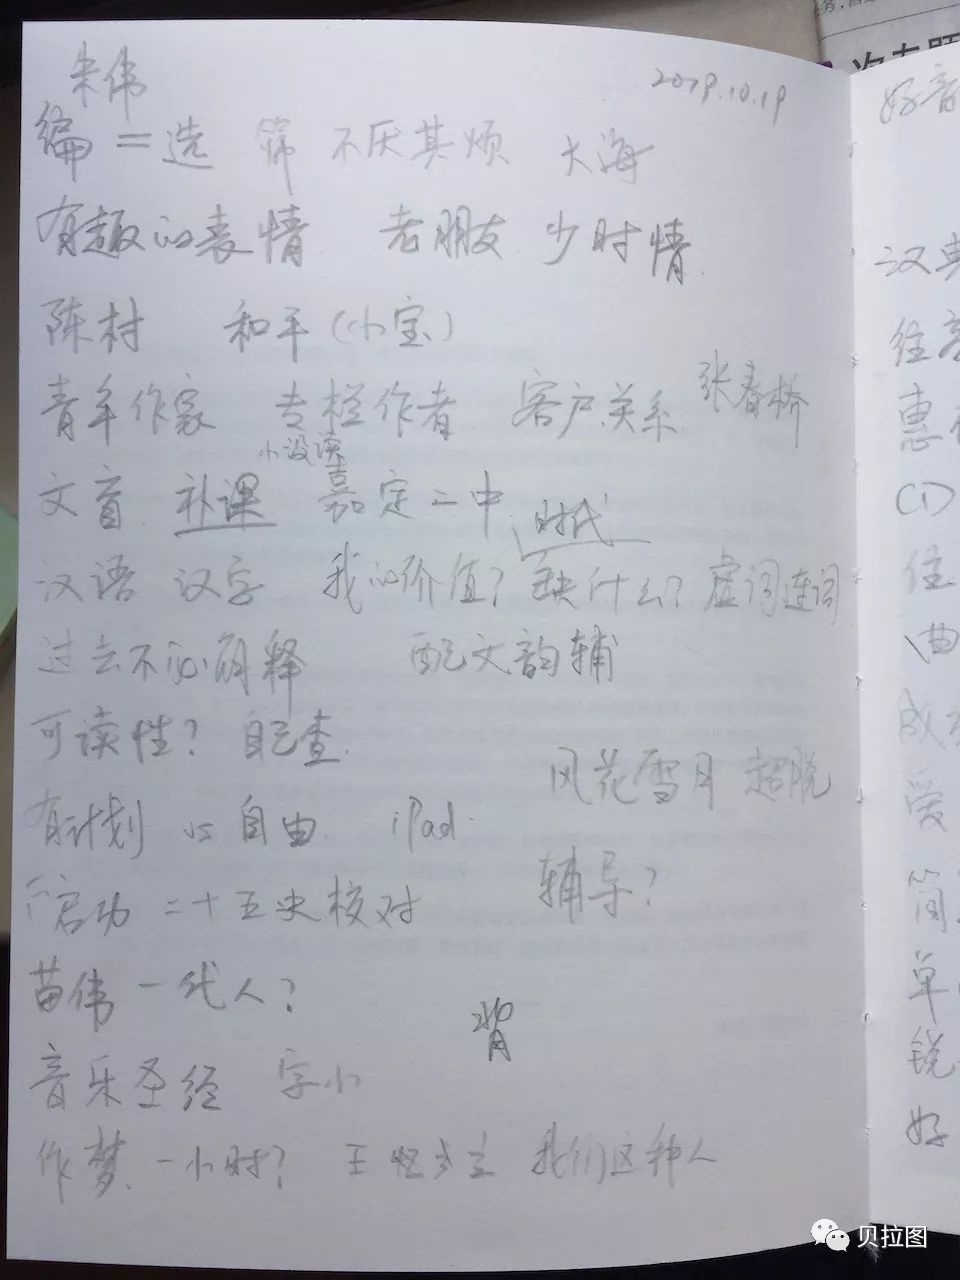 朱伟 2019.10.19 好音
编＝选 筛 不厌其烦 大海
有趣的表情 老朋友 少时情
陈村 和平(小宝)
青年作家 专栏作者 客户关系 张春桥
小没读
文盲 补课 嘉定二中 时代
汉语 汉字 我的价值？缺什么？虚词连词
过去不必解释 配文韵辅
可读性？自己查
风花雪月 超脱
有计划 vs 自由 iPad
启功 二十五史核对 辅导？
苗伟 一代人？
背
音乐圣经 字小
作梦 一小时？ 王 我们这种人
汉
惠
CD
住
曲
成
爱
简
单
锐
好
贝拉图